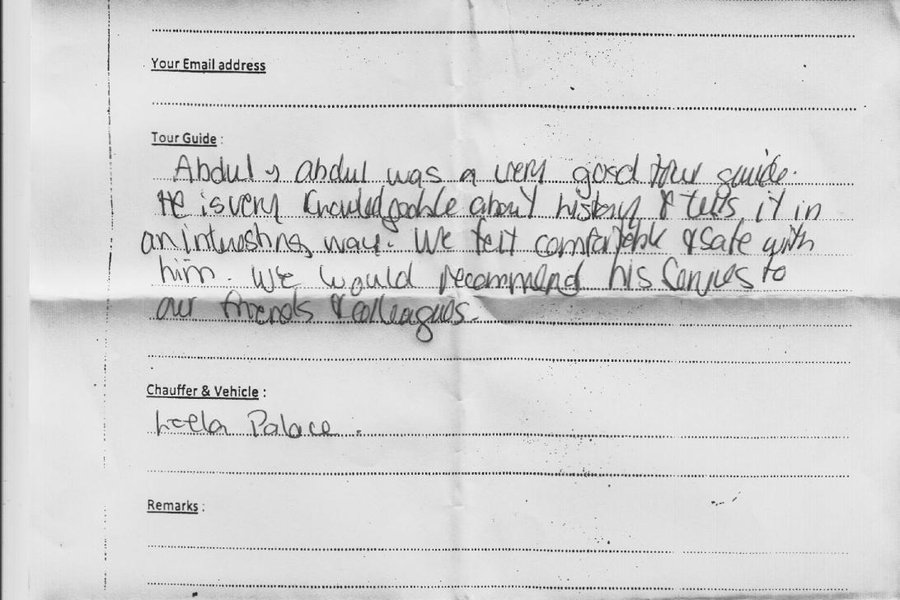 Your Email address
Tour Guide :
Abdul abdul was a very good tour guide.
He is very knowledgeable about history & tells it in
an interesting way. We felt comfortable & safe with
him. We would recommend his services to
our friends & colleagues.
Chauffer & Vehicle :
Leela Palace.
Remarks :